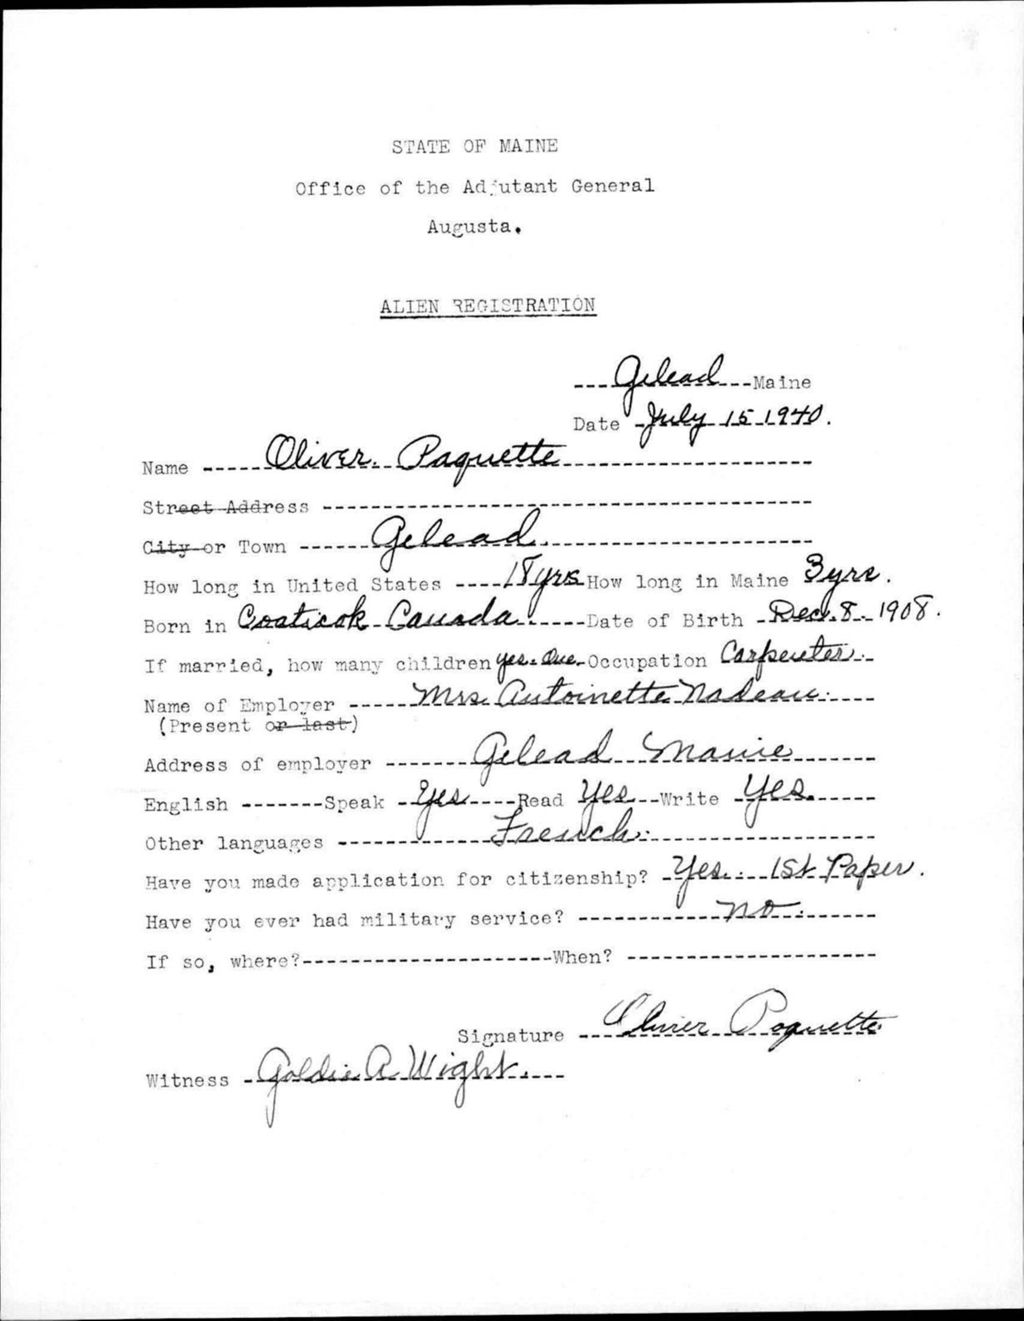 STATE OF MAINE
Office of the Adjutant General
Augusta.
ALIEN REGISTRATION
Gelead Maine
Date July 15 1940.
Name Oliver Paquette
Street Address
City or Town Gelead.
How long in United States 18 yrs How long in Maine 3 yrs.
Born in Coaticok Canada Date of Birth Dec. 8. 1908.
If married, how many children yes. One. Occupation Carpenter.
Name of Employer Mrs. Antoinette Nadeau.
(Present or last)
Address of employer Gelead Maine
English Speak Yes Read Yes Write Yes.
Other languages French.
Have you made application for citizenship? Yes. 1st Paper.
Have you ever had military service? no.
If so, where? When?
Signature Olivier Paquette
Witness Goldie A. Wight.